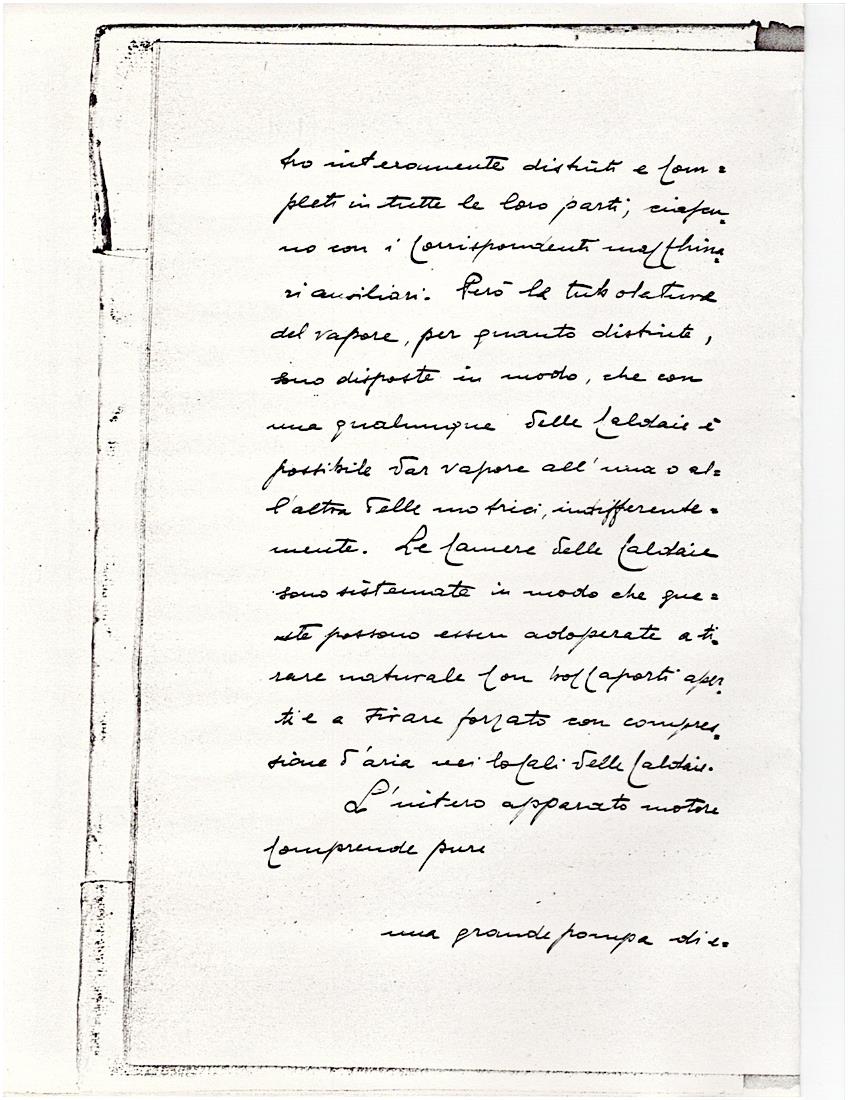 tro interamente distinti e com=
pleti in tutte le loro parti; ciascu-
no con i corrispondenti macchina-
ri ausiliari. Però la tubolatura
del vapore, per quanto distinte,
sono disposte in modo, che con
una qualunque delle caldaie è
possibile dar vapore all'una o al=
l'altra delle motrici, indifferente=
mente. Le Camere delle Caldaie
sono sistemate in modo che que=
ste possono essere adoperate a ti-
rare naturale con boccaporti aper-
ti e a tirare forzato con compres-
sione d'aria nei locali delle Caldaie.
L'intero apparato motore
comprende pure
una grande pompa di e=